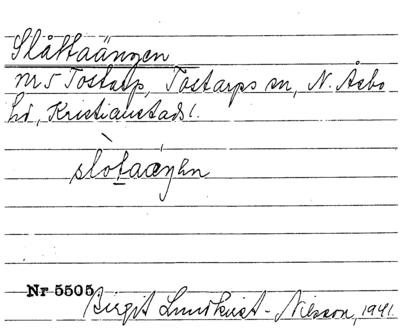 Slåttaängen
nr 5 Tostarp, Tostarps sn, N. Åsbo
hd, Kristianstads l.
Nr 5505
Birgit Lundkvist-Nilsson, 1941.